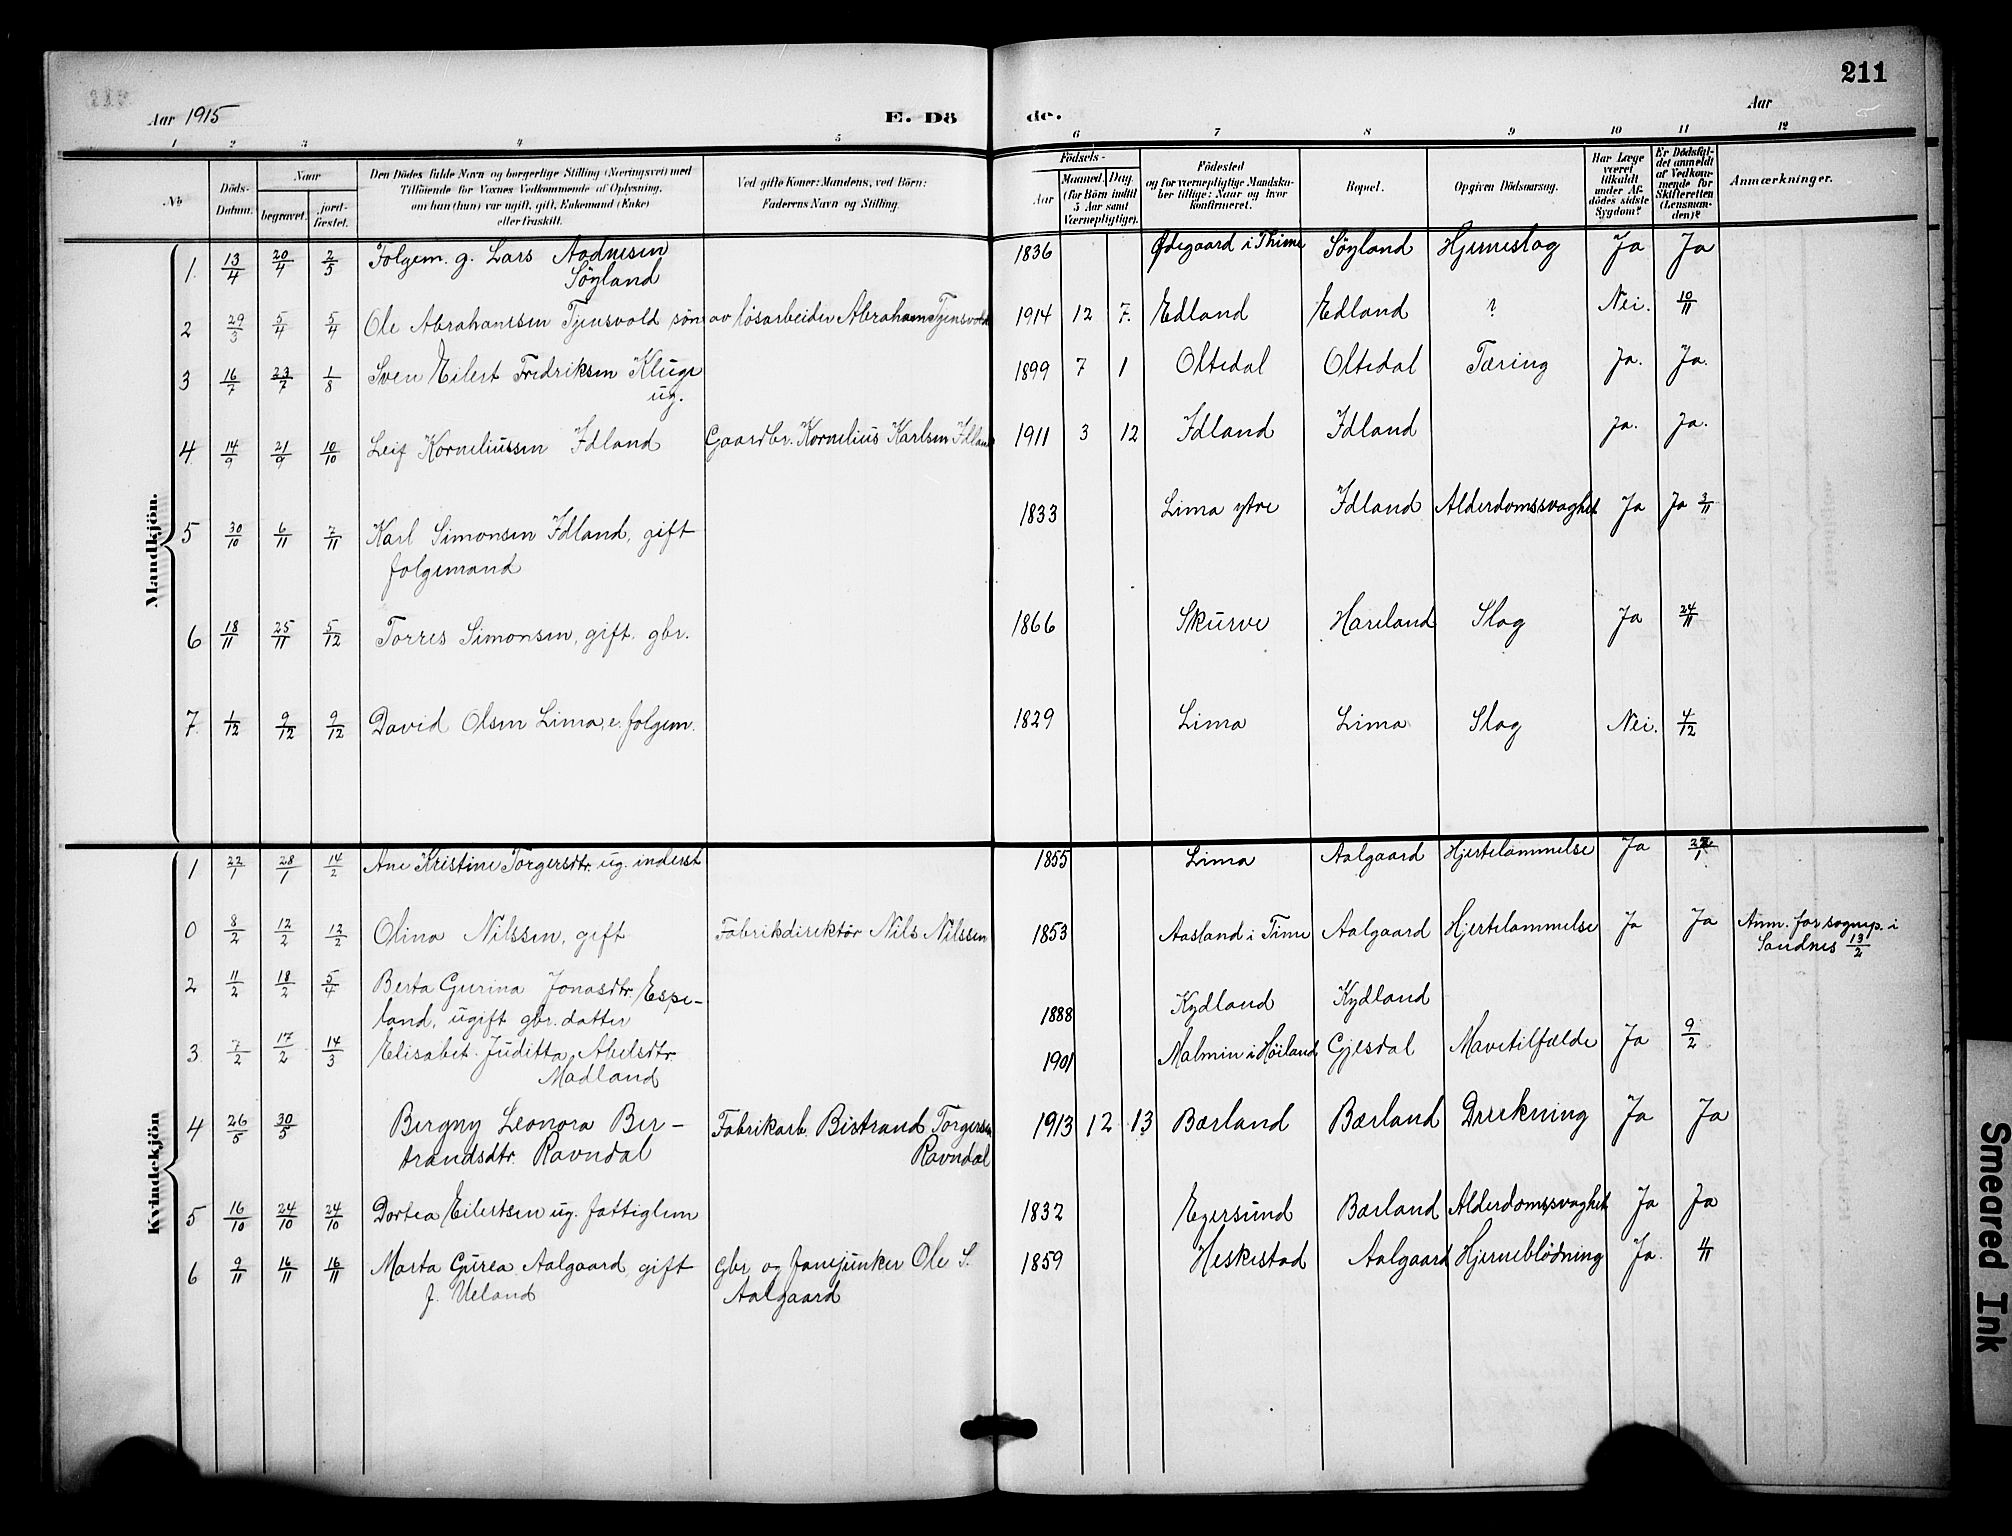 211
Aar 1915
E. Dö
de.
Aar
1 2 3 4 5 6 7 8 9 10 11 12
No
Döds-Datum.
Naar
begravet.
jord-fæstet.
Den Dödes fulde Navn og borgerlige Stilling (Næringsvei) med
Tilföiende for Voxnes Vedkommende af Oplysning,
om han (hun) var ugift, gift, Enkemand (Enke)
eller fraskilt.
Ved gifte Koner: Mandens, ved Börn:
Faderens Navn og Stilling.
Födsels-
Aar
Maaned. Dag.
(for Börn indtil
5 Aar samt
Værnepligtige).
Födested
og for værnepligtige Mandska-
ber tillige: Naar og hvor
konfirmeret.
Bopæl.
Opgiven Dödsaarsag.
Har Læge
været
tilkaldt
under Af-
dödes sidste
Sygdom?
Er Dödsfal-
det anmeldt
af Vedkom-
mende for
Skifteretten
(Lensman-
den)?
Anmærkninger.
Mandkjön.
1. 13/4 20/4 2/5 Folgem. g. Lars Aadnesen 1836 Ødegaard i Thime Söyland Hjerneslag Ja Ja
Söyland
2 29/3 5/4 5/4 Ole Abrahamssen Tjensvold sön av lösarbeider Abraham Tjensvold 1914 12 7. Edland Edland ? Nei. 10/11
3 16/7 23/7 1/8 Sven Eilert Fredriksen Kluge 1899 7 1 Oltedal Oltedal Tæring Ja. Ja.
ug.
4 14/9 21/9 10/10 Leif Korneliussen Idland Gaardbr. Kornelius Karlsen Idland 1911 3 12 Idland Idland Ja. Ja.
5 30/10 6/11 7/11 Karl Simonsen Idland, gift 1833 Lima ytre Idland Alderdomssvaghet Ja Ja 3/11
folgemand
6 18/11 25/11 5/12 Torres Simonsen, gift. gbr. 1866 Skurve Hareland Slag Ja 24/11
7. 1/12 9/12 9/12 David Olsen Lima, e. folgem. 1829 Lima Lima Slag Nei. 4/12
Kvindekjön
1 22/1 28/1 14/2 Ane Kristine Torgersdtr. ug. inderst 1855 Lima Aalgaard Hjertelammelse Ja
0 8/2 12/2 12/2 Olina Nilssen, gift Fabrikdirektör Nils Nilssen 1853 Aasland i Time Aalgaard Hjertelammelse Ja Ja Anm. for sognep. i
Sandnes 13/2
2 11/2 18/2 5/4 Berta Gurina Jonasdtr. Espe-
land, ugift gbr. datter 1888 Kydland Kydland
3 7/2 17/2 14/3 Elisabet Juditta Abelsdtr 1901 Malmin i Höiland Gjesdal Mavetilfælde Ja 9/2
Madland
4 26/5 30/5 Bergny Leonora Ber- Fabrikarb. Bistrand Torgersen 1913 12 13 Bærland Bærland Drukning Ja Ja
trandsdtr. Ravndal Ravndal
5 16/10 24/10 24/10 Dortea Eilertsen ug. fattiglem 1832 Egersund Bærland Alderdomssvaghet Ja Ja
6 9/11 16/11 16/11 Marta Gurea Aalgaard, gift gbr og fanejunker Ole S. 1859 Heskestad Aalgaard Hjerneblödning Ja.
f. Ueland Aalgaard
Smeared Ink